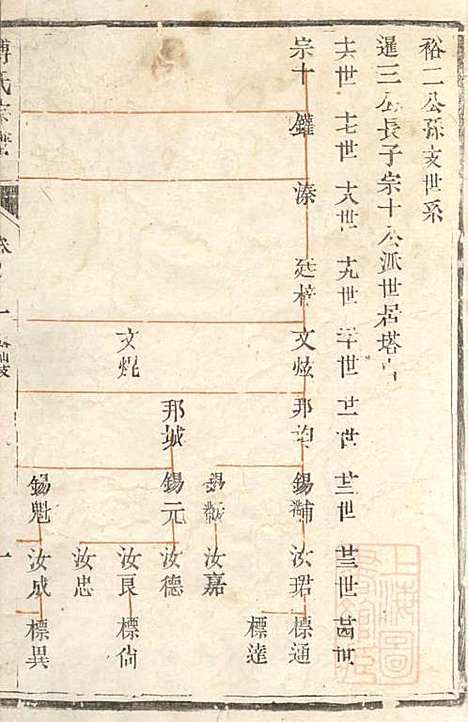 裕二公孫支世系
暹三公長子宗十公派世居塔
十六世 十七世 十八世 十九世 二十世 廿一世 廿二世 廿三世 廿四世
宗十 鑵 溱 廷梓 文炫 邦 錫輔 汝珺 標通
標達
錫 汝嘉
邦城 錫元 汝德
文炕 汝良 標尙
汝忠
錫魁 汝成 標異
氏宗譜
上海圖